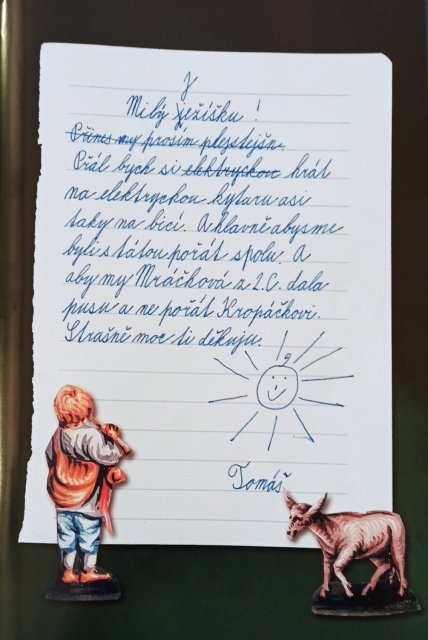 J
Milý ježíšku !
Přines my prosím plejstejšn.
Přál bych si elektryckou hrát
na elektryckou kytaru asi
taky na bicí. A hlavně abysme
byli s tátou pořát spolu. A
aby my Mráčková z 2.C. dala
pusu a ne pořát Kropáčkovi.
Strašně moc ti děkuju.
Tomáš